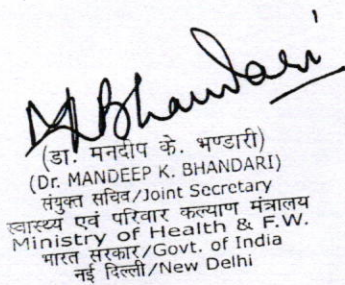 MBhandari
(डा. मनदीप के. भण्डारी)
(Dr. MANDEEP K. BHANDARI)
संयुक्त सचिव/Joint Secretary
स्वास्थ्य एवं परिवार कल्याण मंत्रालय
Ministry of Health & F.W.
भारत सरकार/Govt. of India
नई दिल्ली/New Delhi